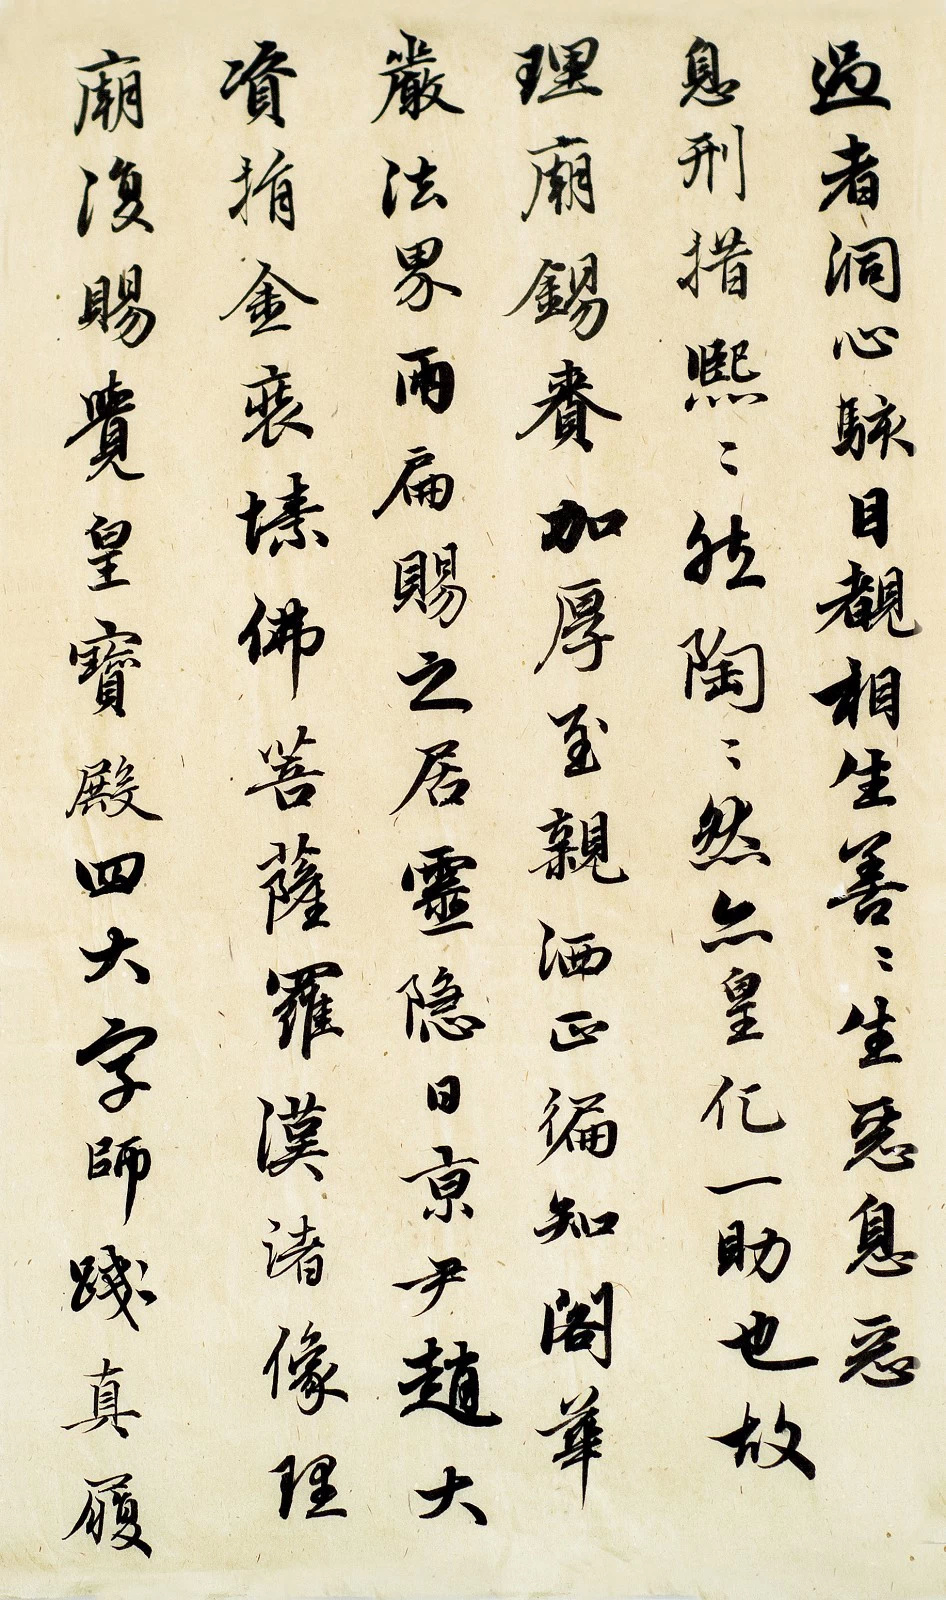 過者洞心駭目覩相生善〻生惡息惡
息刑措熙〻然陶〻然亦皇化一助也故
理廟錫賚加厚至親洒正徧知閣華
嚴法界雨扁賜之居靈隐日京尹趙大
資捐金裒塐佛菩薩羅漢諸像理
廟復賜覺皇寶殿四大字師踐真履